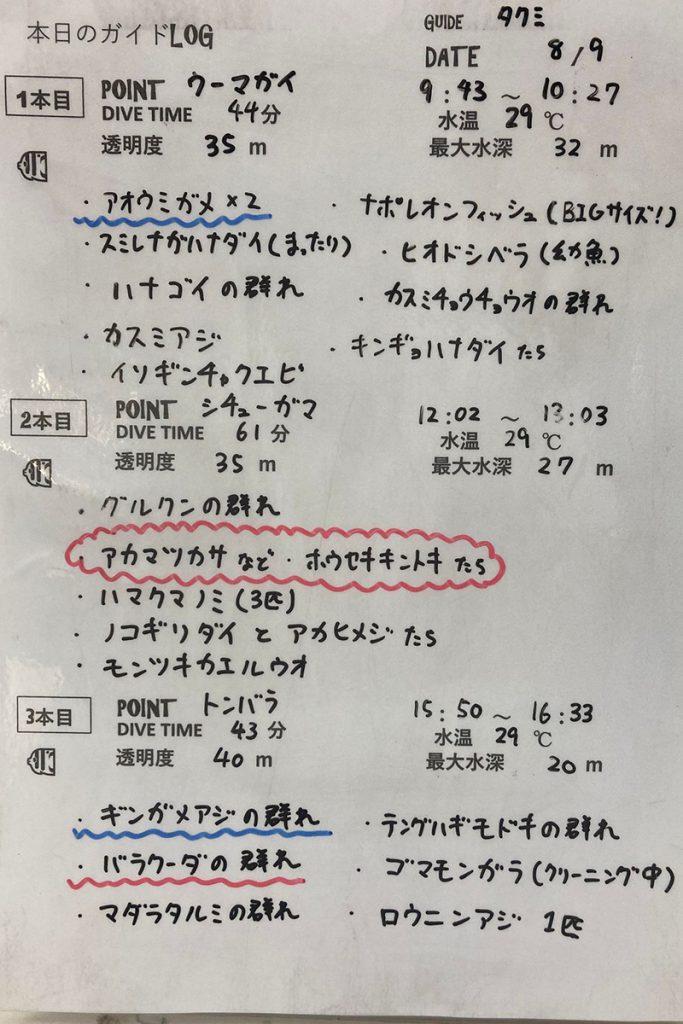 本日のガイドLOG
GUIDE タクミ
DATE 8/9
1本目 POINT ウーマガイ 9:43 ~ 10:27
DIVE TIME 44分 水温 29℃
透明度 35 m 最大水深 32 m
・アオウミガメ×2 ・ナポレオンフィッシュ(BIGサイズ!)
・スミレナガハナダイ(まったり) ・ヒオドシベラ(幼魚)
・ハナゴイの群れ ・カスミチョウチョウオの群れ
・カスミアジ ・キンギョハナダイたち
・イソギンチャクエビ
2本目 POINT シチューガマ 12:02 ~ 13:03
DIVE TIME 61分 水温 29℃
透明度 35 m 最大水深 27 m
・グルクンの群れ
・アカマツカサなど・ホウセキキントキたち
・ハマクマノミ(3匹)
・ノコギリダイとアカヒメジたち
・モンツキカエルウオ
3本目 POINT トンバラ 15:50 ~ 16:33
DIVE TIME 43分 水温 29℃
透明度 40 m 最大水深 20 m
・ギンガメアジの群れ ・テングハギモドキの群れ
・バラクーダの群れ ・ゴマモンガラ(クリーニング中)
・マダラタルミの群れ ・ロウニンアジ 1匹